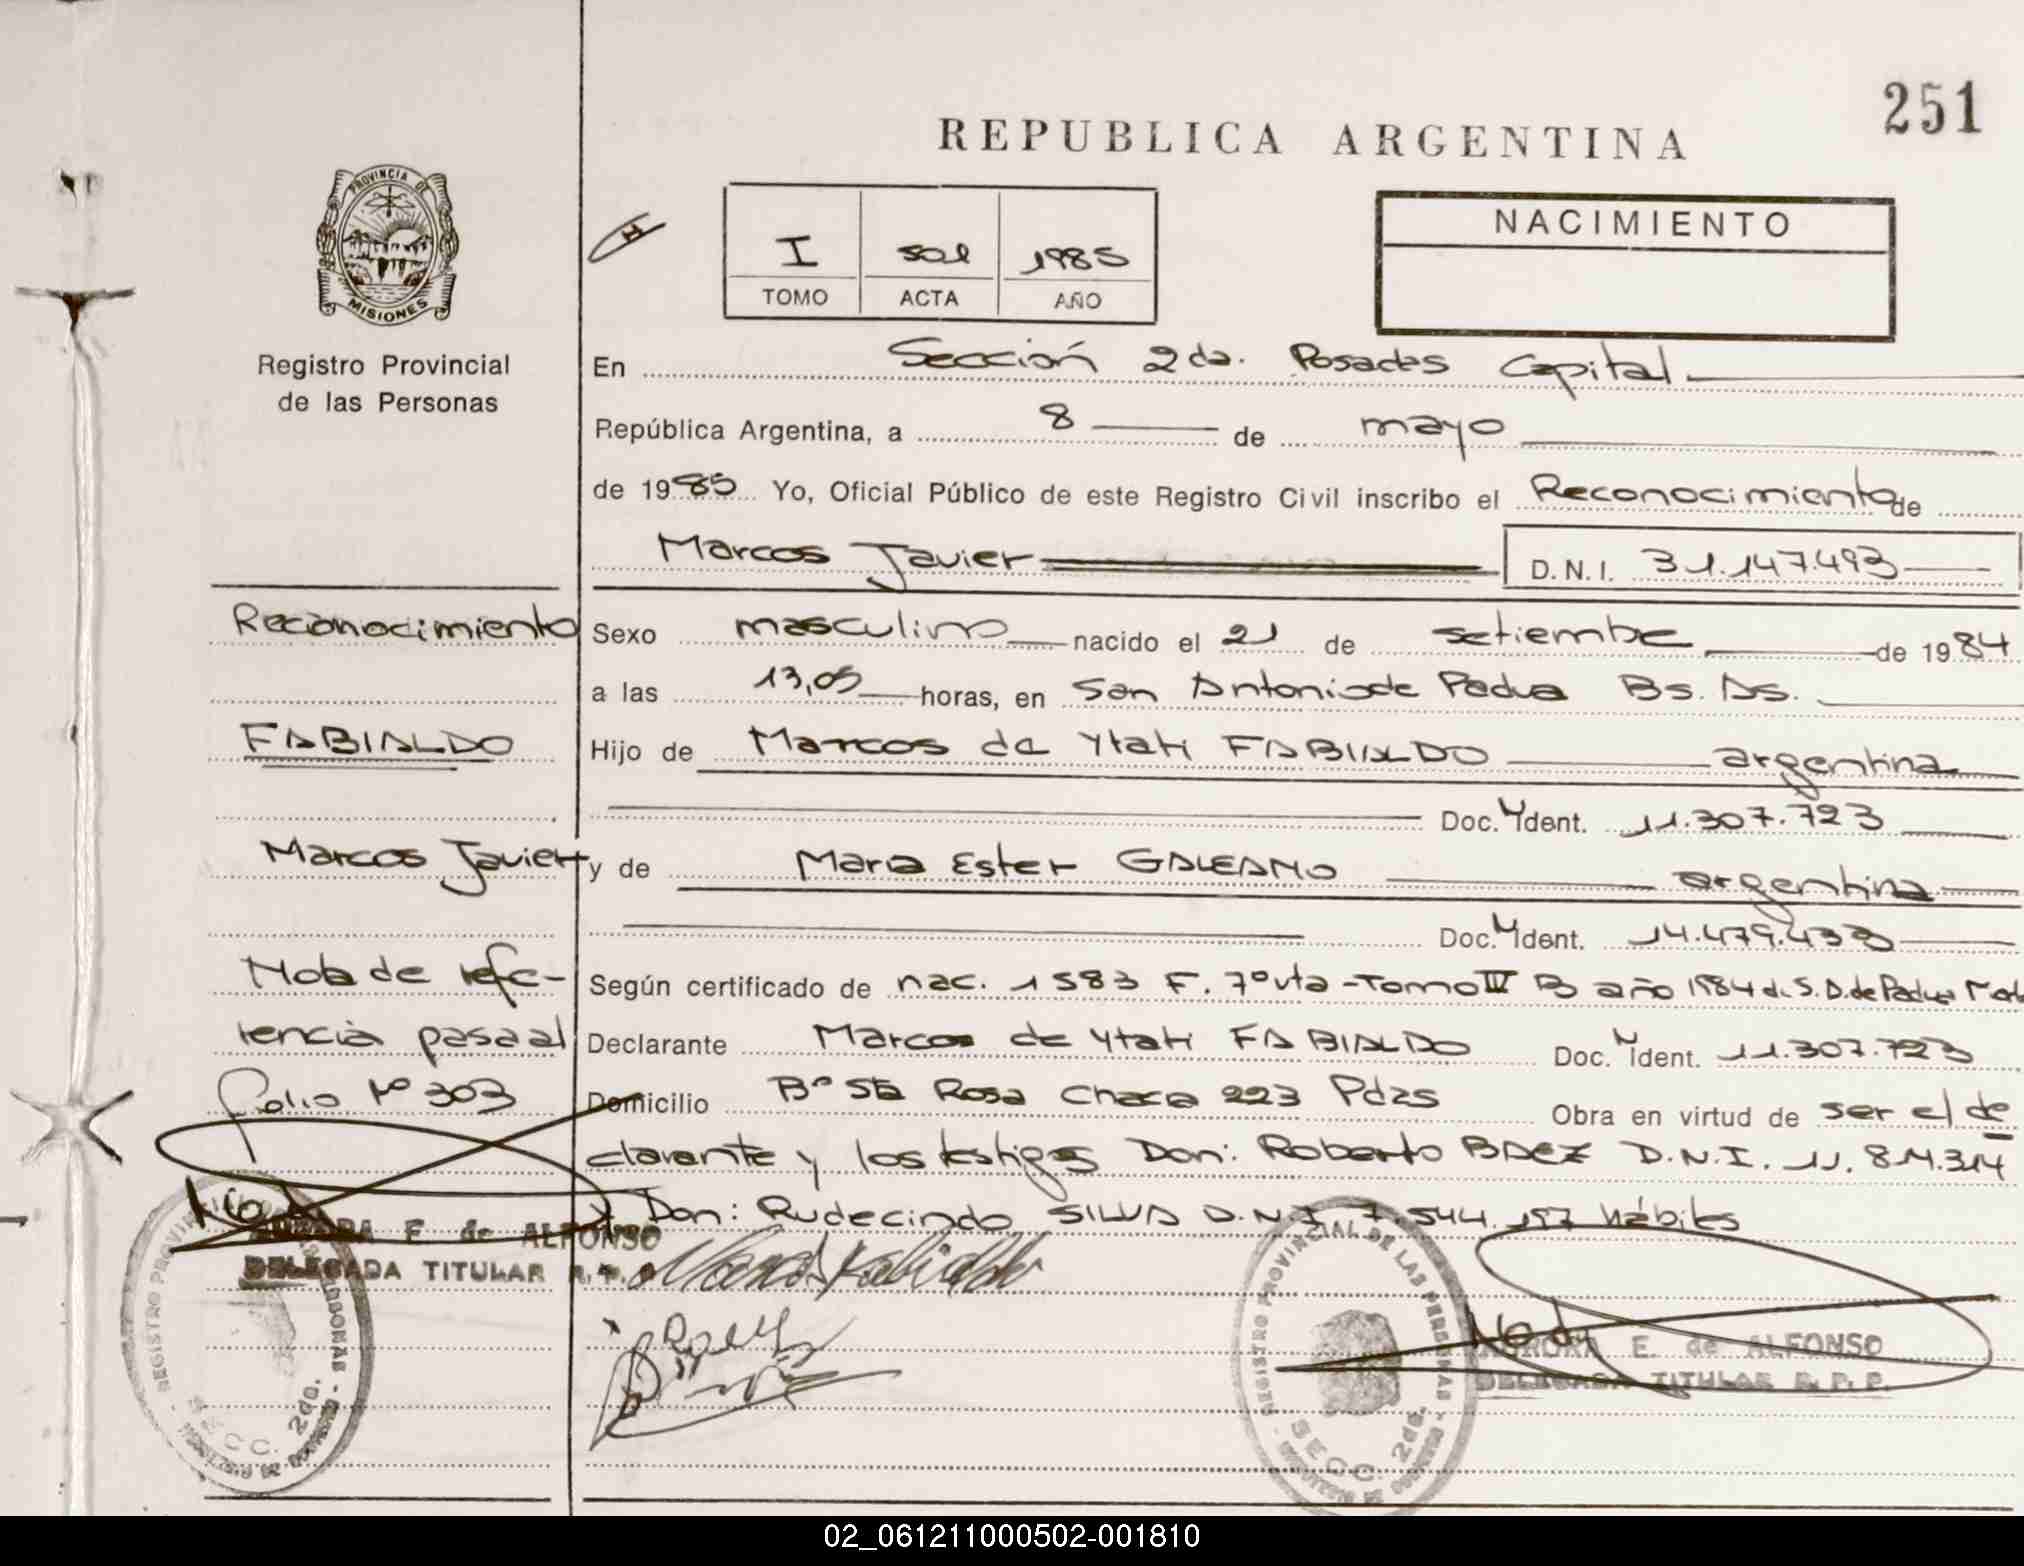 251
REPUBLICA ARGENTINA
PROVINCIA DE
MISIONES
Registro Provincial
de las Personas
I 501 1985
TOMO ACTA AÑO
NACIMIENTO
En Sección 2da. Posadas Capital
República Argentina, a 8 de mayo
de 1985 Yo, Oficial Público de este Registro Civil inscribo el Reconocimiento de
Marcos Javier D.N.I. 31.147.493
Reconocimiento
FABIALDO
Marcos Javier
Nota de refe-
rencia pasa al
folio Nº 303
Sexo masculino nacido el 21 de setiembre de 1984
a las 13,05 horas, en San Antonio de Padua Bs. As.
Hijo de Marcos de Ytati FABIALDO argentina
Doc. Ident. 11.307.723
y de Maria Ester GALEANO argentina
Doc. Ident. 14.479.433
Según certificado de nac. 1583 F. 7º vta - Tomo IV B año 1984 d. S. A. de Padua
Declarante Marcos de Ytati FABIALDO Doc. Ident. 11.307.723
Domicilio Bº Sta Rosa Chacra 223 Pdas Obra en virtud de ser el de
clarante y los testigos Don: Roberto BAEZ D.N.I. 11.814.314
y Don: Rudecindo SILVA D.N.I 7.544.157 hábiles
AURORA E. de ALFONSO
DELEGADA TITULAR R.P.P.
REGISTRO PROVINCIAL DE LAS PERSONAS
SECC. 2da.
AURORA E. de ALFONSO
DELEGADA TITULAR R.P.P.
REGISTRO PROVINCIAL DE LAS PERSONAS
SECC. 2da.
02_061211000502-001810